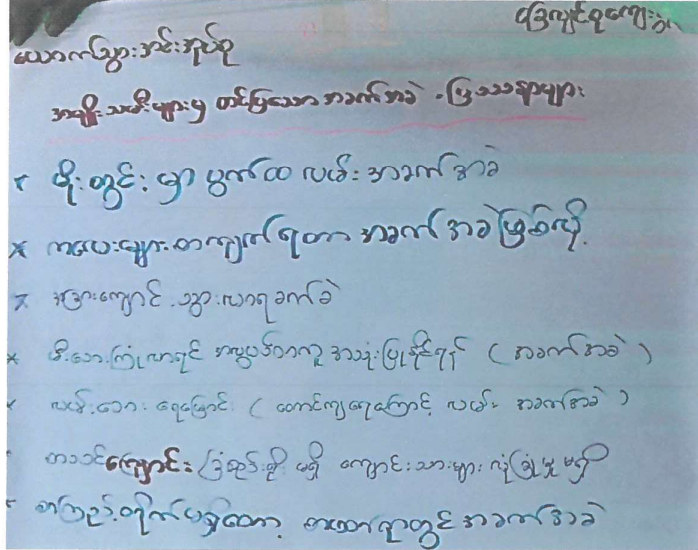 ခြေကျင်စုကျေးရွာ
ယောက်သွားအင်းအုပ်စု
အမျိုးသမီးများမှ တင်ပြသော အခက်အခဲ - ပြဿနာများ
* မိုးတွင်းမှာ ဗွက်ထ လမ်းအခက်အခဲ
* ကလေးများ တကျက်ရတာ အခက်အခဲဖြစ်လို့
* အခြားကျောင်းသွားလာရခက်ခဲ
* မီးဘေးကြုံလာရင် အလွယ်တကူ အသုံးပြုနိုင်ရန် (အခက်အခဲ)
* လမ်းဘေး ရေမြောင်း (တောင်ကျရေကြောင့် လမ်း အခက်အခဲ)
စာသင်ကျောင်း ခြံစည်းရိုး မရှိ ကျောင်းသားများ လုံခြုံမှု မရှိ
* စာကြည့်တိုက်မရှိတော့ စာပေရှာတွင်အခက်အခဲ